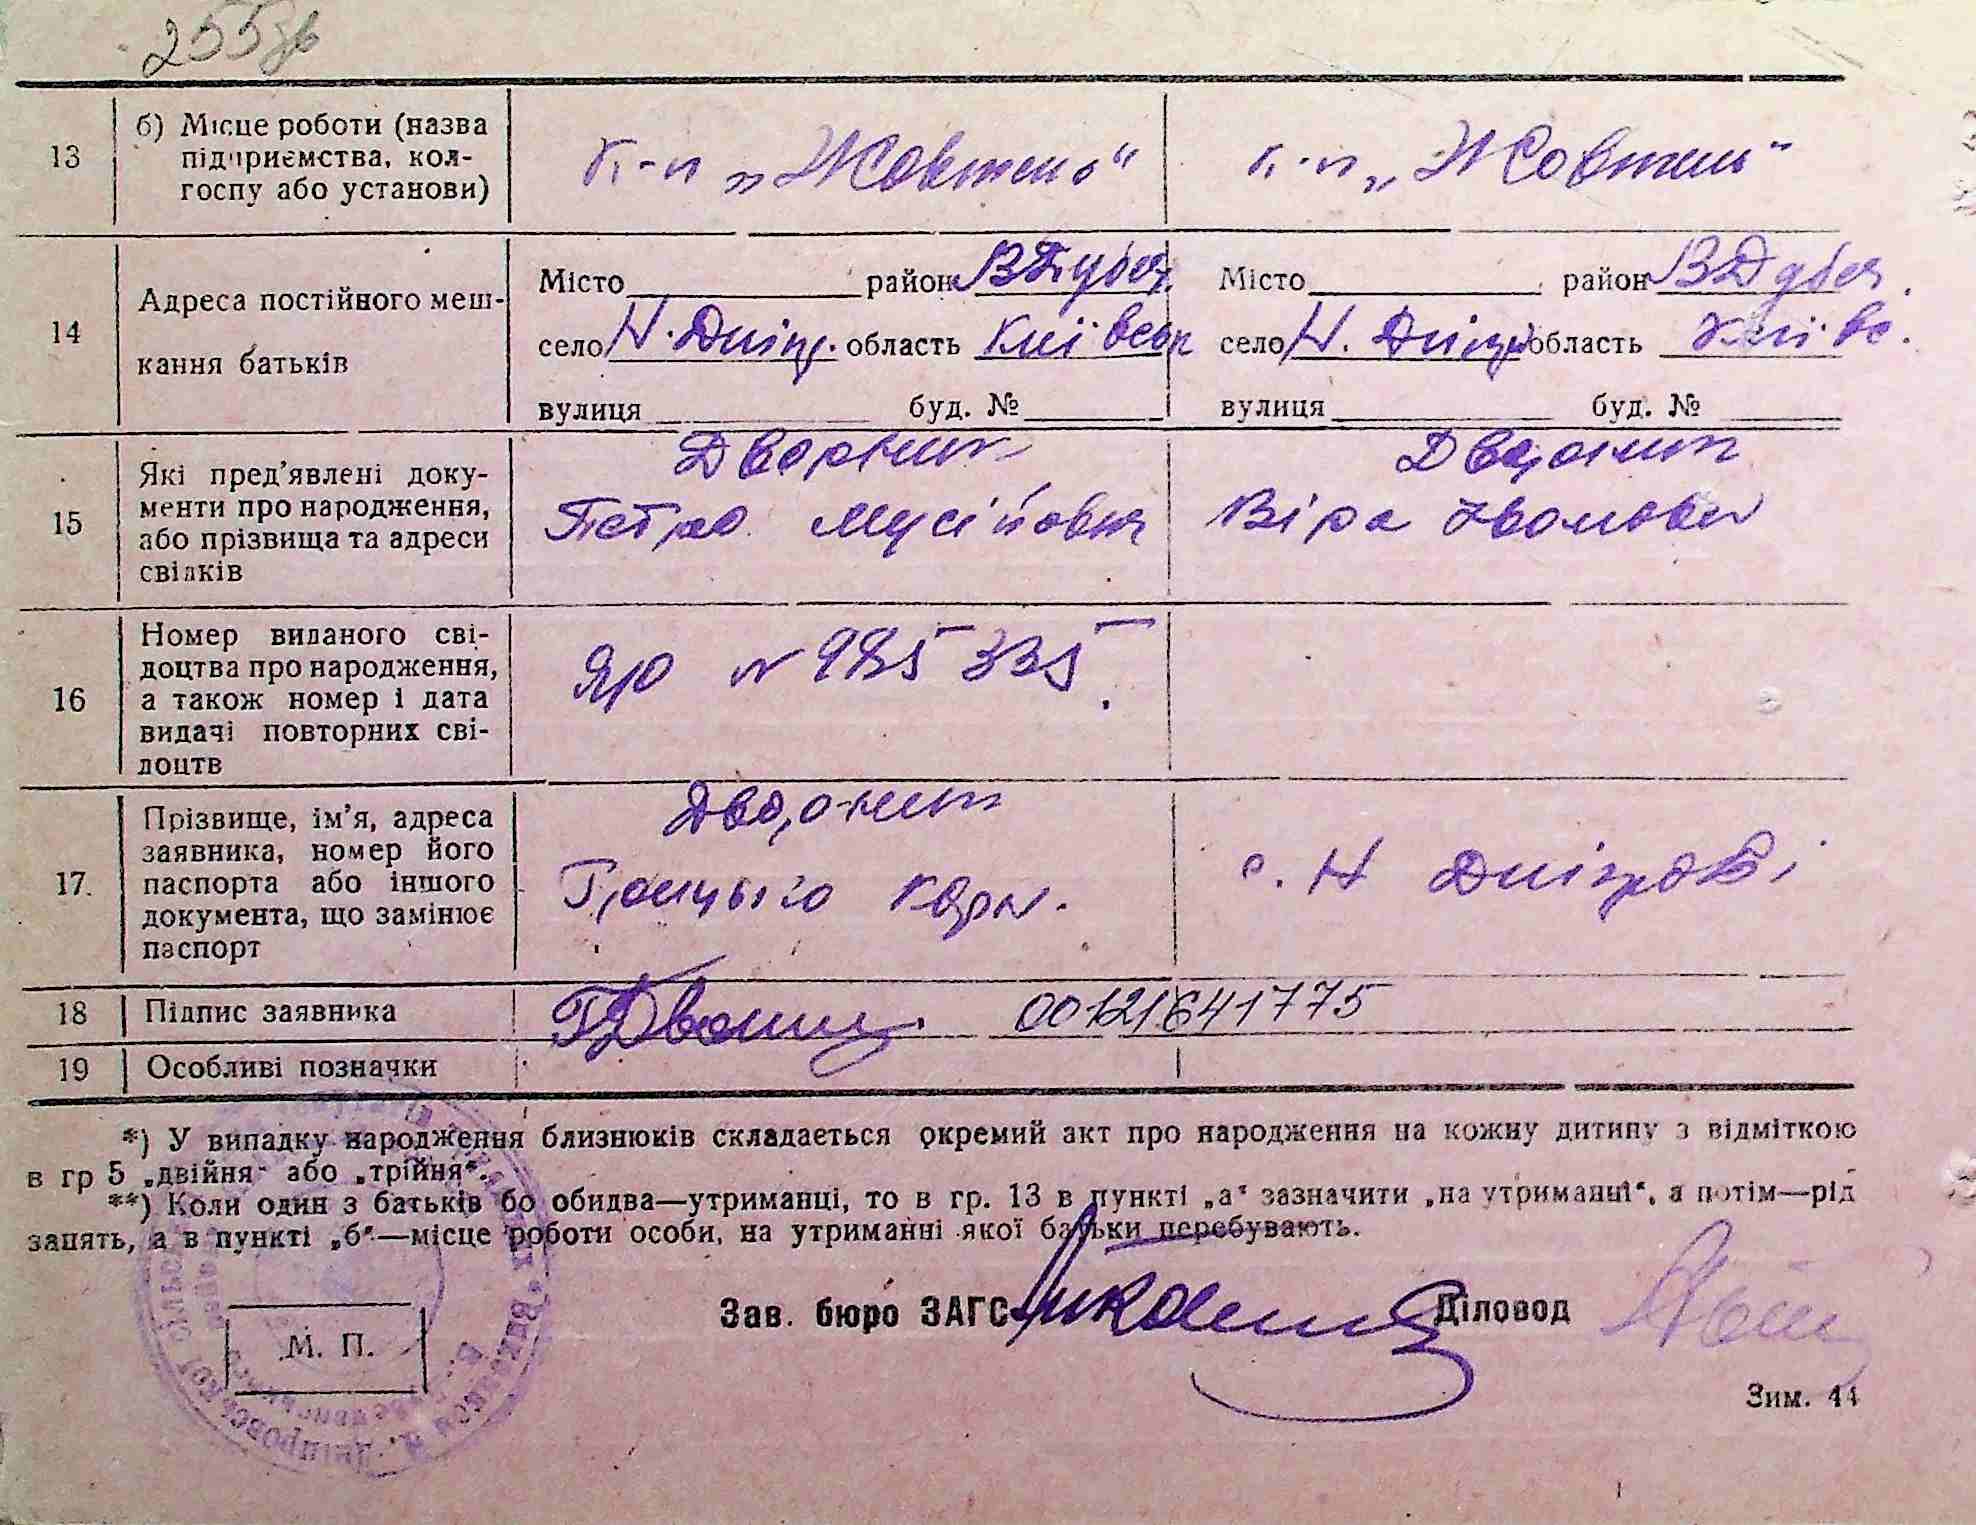 255зв
13
б) Місце роботи (назва
підприємства, кол-
госпу або установи)
к-п „Жовтень“
к-п „Жовтень“
14
Адреса постійного меш-
кання батьків
Місто район В Дубеч.
село Н. Дніпр. область Київськ
вулиця буд. №
Місто район В Дубеч.
село Н. Дніпр область Київс.
вулиця буд. №
15
Які пред’явлені доку-
менти про народження,
або прізвища та адреси
свідків
Дворнит
Петро Мусійович
Віра
16
Номер виданого сві-
доцтва про народження,
а також номер і дата
видачі повторних сві-
доцтв
ЯЮ № 985335
17.
Прізвище, ім’я, адреса
заявника, номер його
паспорта або іншого
документа, що замінює
паспорт
с. Н Дніпрові
18
Підпис заявника
00121641775
19
Особливі позначки
*) У випадку народження близнюків складається окремий акт про народження на кожну дитину з відміткою
в гр 5 „двійня“ або „трійня“.
**) Коли один з батьків бо обидва—утриманці, то в гр. 13 в пункті „а“ зазначити „на утриманні“, а потім—рід
занять, а в пункті „б“—місце роботи особи, на утриманні якої батьки перебувають.
Зав. бюро ЗАГС Діловод
М. П.
Зим. 44